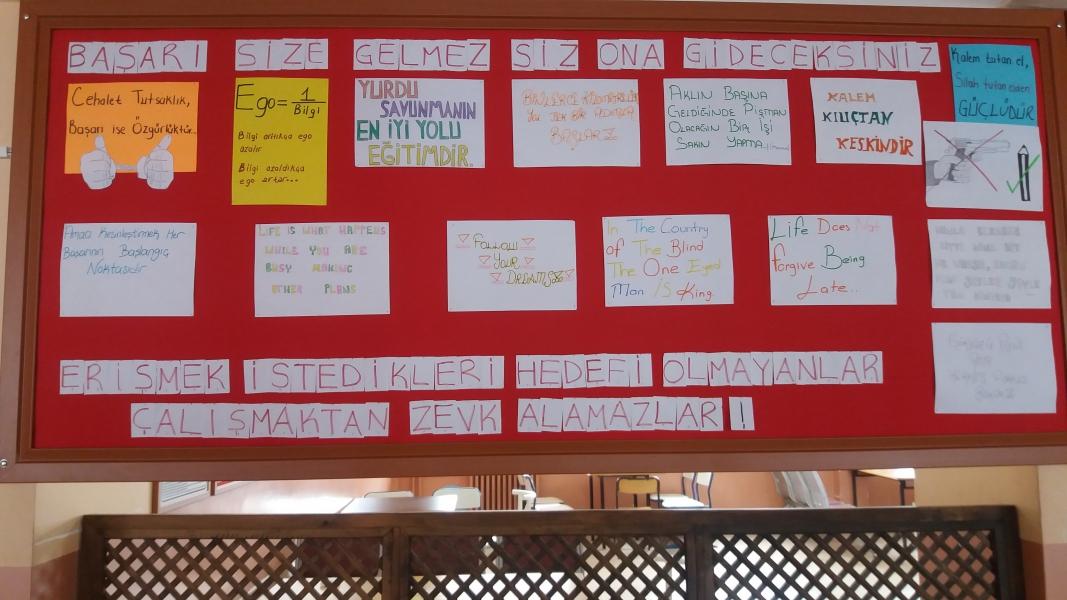 BAŞARI SİZE GELMEZ SİZ ONA GİDECEKSİNİZ
Cehalet Tutsaklık,
Başarı ise Özgürlüktür...
Ego = 1
Bilgi
Bilgi arttıkça ego
azalır
Bilgi azaldıkça
ego artar...
YURDU
SAVUNMANIN
EN İYİ YOLU
EĞİTİMDİR.
TEK BİR
BAŞLAR
AKLIN BAŞINA
GELDİĞİNDE PİŞMAN
OLACAĞIN BİR İŞİ
SAKIN YAPMA..
KALEM
KILIÇTAN
KESKİNDİR
Kalem tutan el,
Silah tutan elden
GÜÇLÜDÜR
Amacı Kesinleştirmek Her
Başarının Başlangıç
Noktasıdır
LIFE IS WHAT HAPPENS
WHILE YOU ARE
BUSY MAKING
OTHER PLANS
FOLLOW
YOUR
DREAMS
In The Country
of The Blind
The One Eyed
Man IS King
Life Does Not
forgive Being
Late..
ERİŞMEK İSTEDİKLERİ HEDEFİ OLMAYANLAR
ÇALIŞMAKTAN ZEVK ALAMAZLAR !